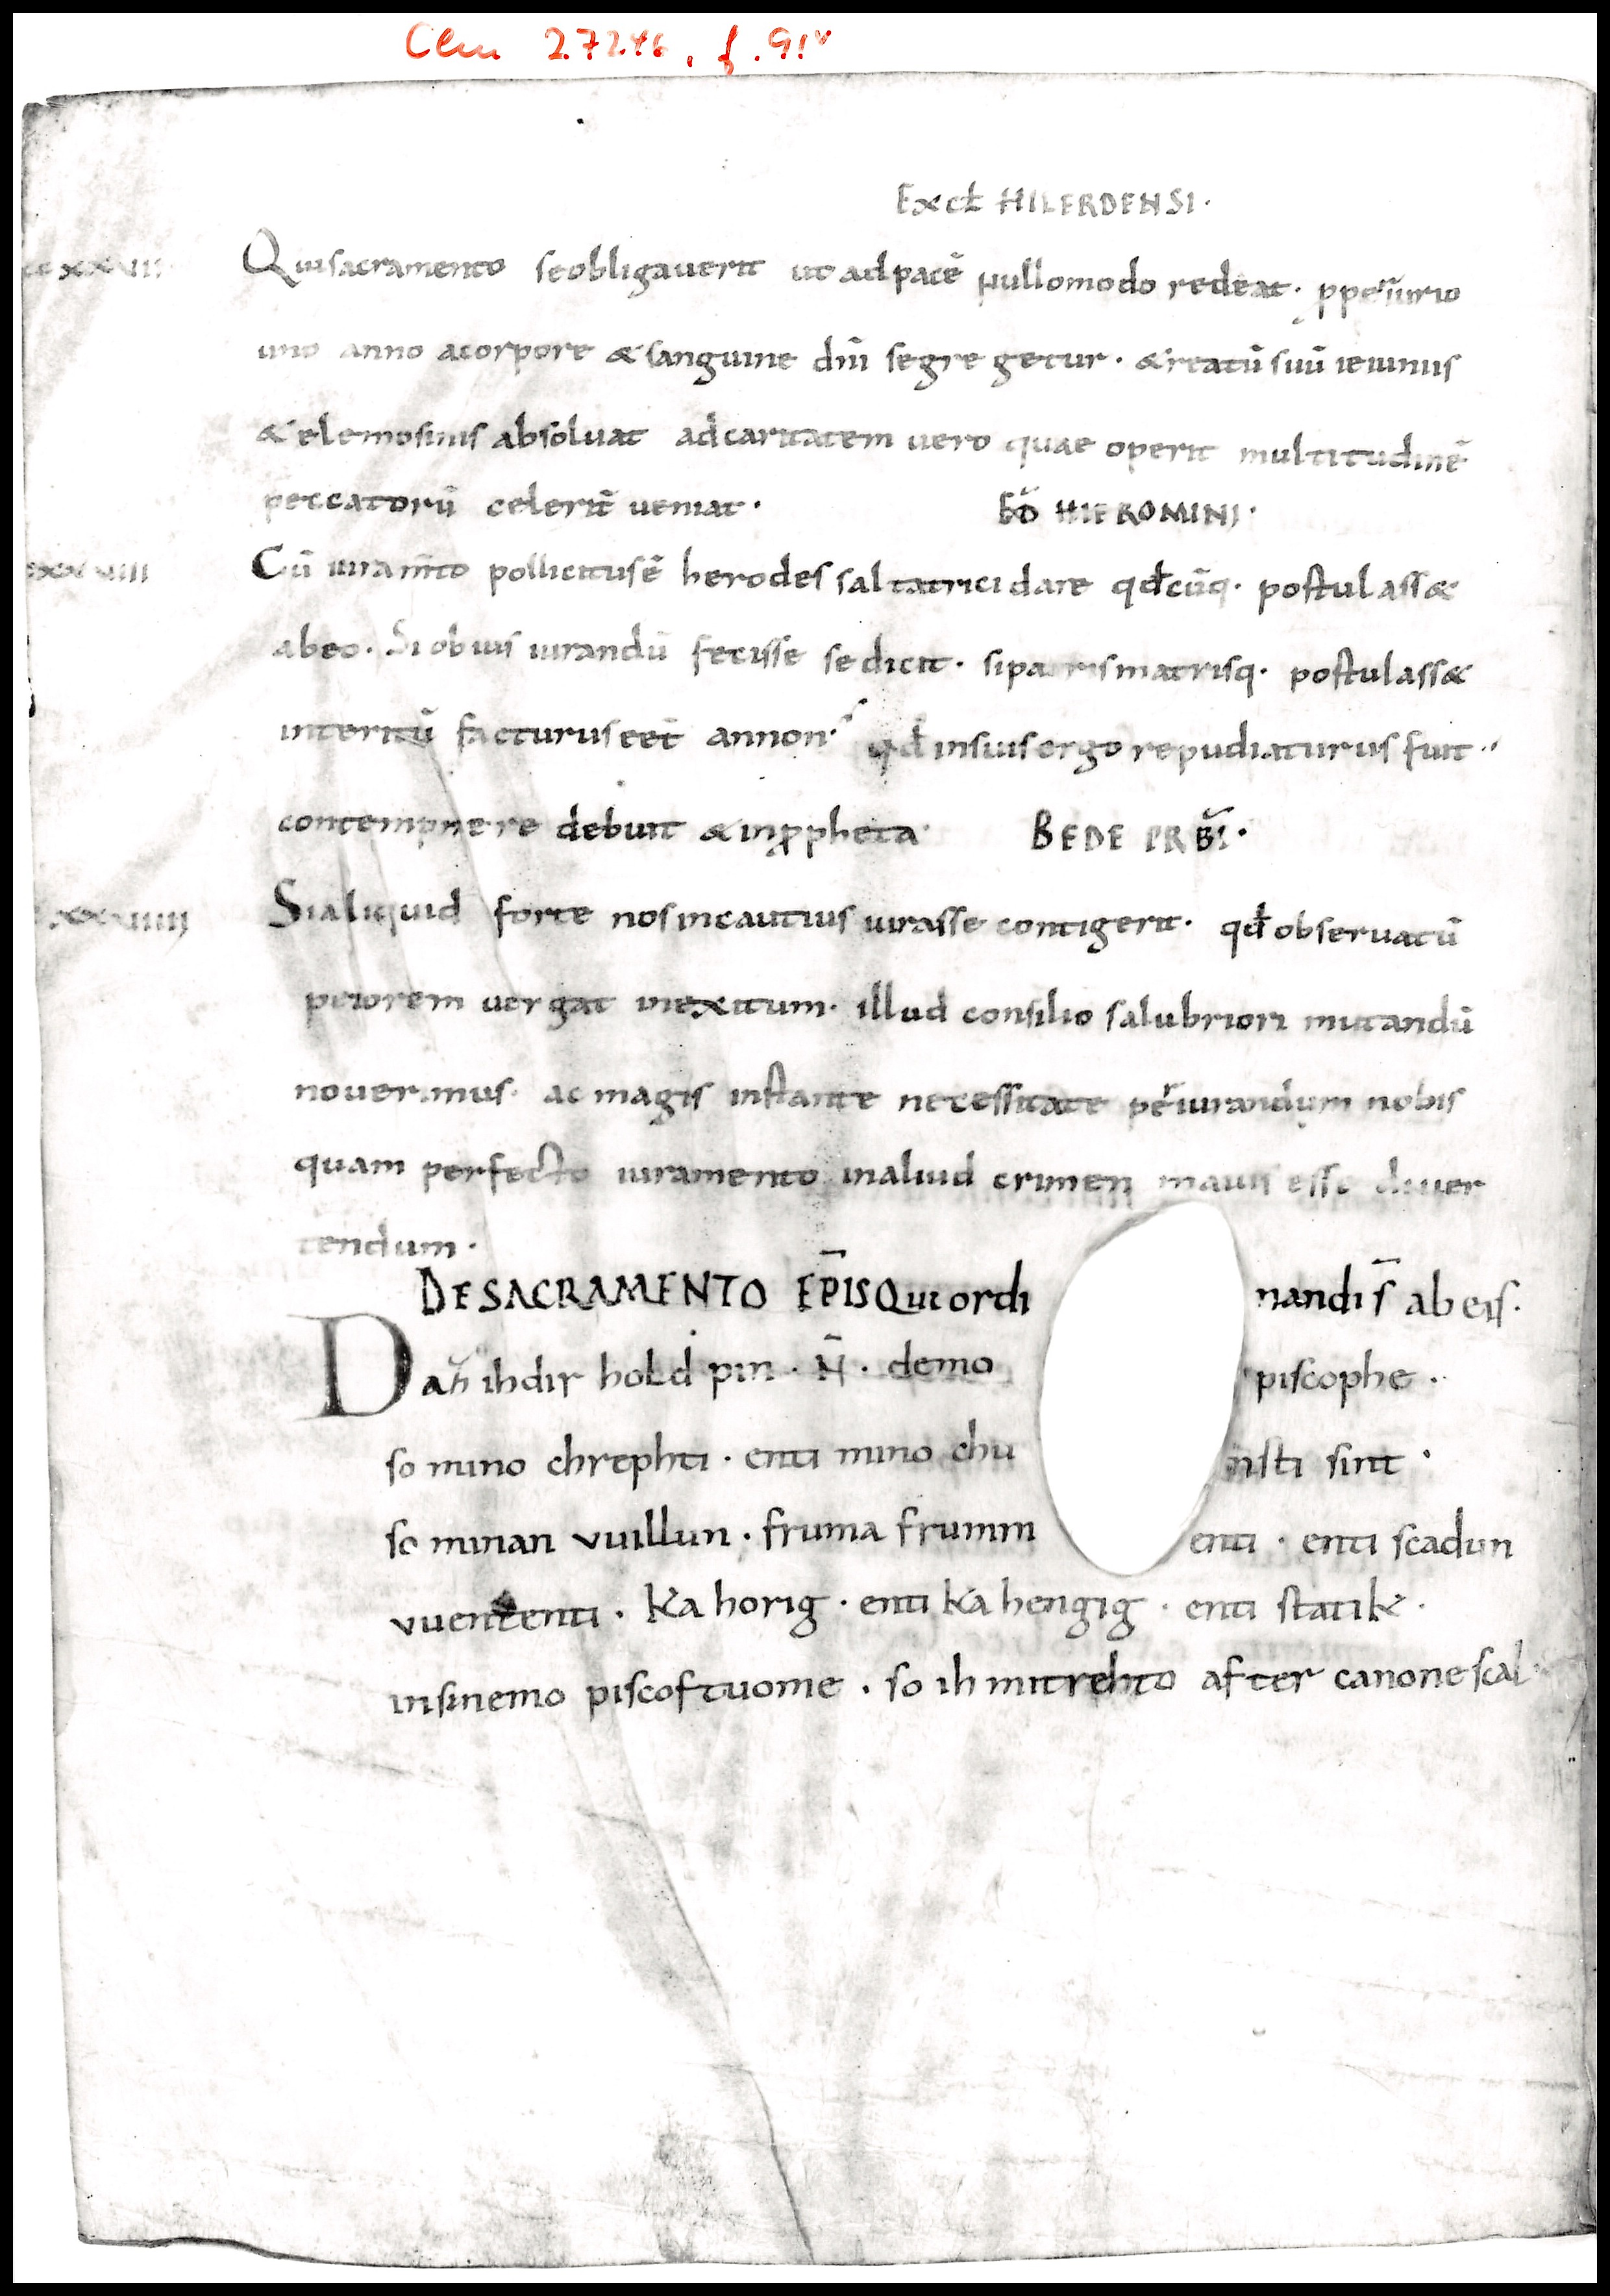 Clm 27246, f. 91v
Exct HILERDENSI·
Qui sacramento se obligauerit ut ad pacē nullo modo redeat· ꝓ periurio
uno anno a corpore & sanguine dn̄i segregetur· & reatū suū ieiuniis
& elemosinis absoluat ad caritatem uero quae operit multitudinē
peccatorū celerit̄ ueniat· HIEROMINI·
xxxviii Cū iuram̄to pollicitus ē herodes saltatrici dare qd̄cūq· postulass&
ab eo· Si ob ius iurandū fecisse se dicit· si patris matrisq· postulass&
interitū facturus eēt annon· qd̄ in suis ergo repudiaturus fuit··
contempnere debuit & in ꝓpheta· BEDE PRBĪ·
xxxviiii Si aliquid forte nos incautius iurasse contigerit· qd̄ obseruatū
peiorem uergat in exitum· illud consilio salubriori mutandū
nouerimus· ac magis instante necessitate periurandum nobis
quam perfecto iuramento in aliud crimen maius esse diuer
tendum·
DE SACRAMENTO EP̄IS Qui ordi nandi s̄ ab eis·
Daz̄ ih dir hold pin · N̄ · demo piscophe ·
so mino chrephti · enti mino chu nsti sint ·
so minan vuillun · fruma frumm enti · enti scadun
vuententi · Kahorig · enti Kahengig · enti statik ·
in sinemo piscoftuome · so ih mit rehto after canone scal·